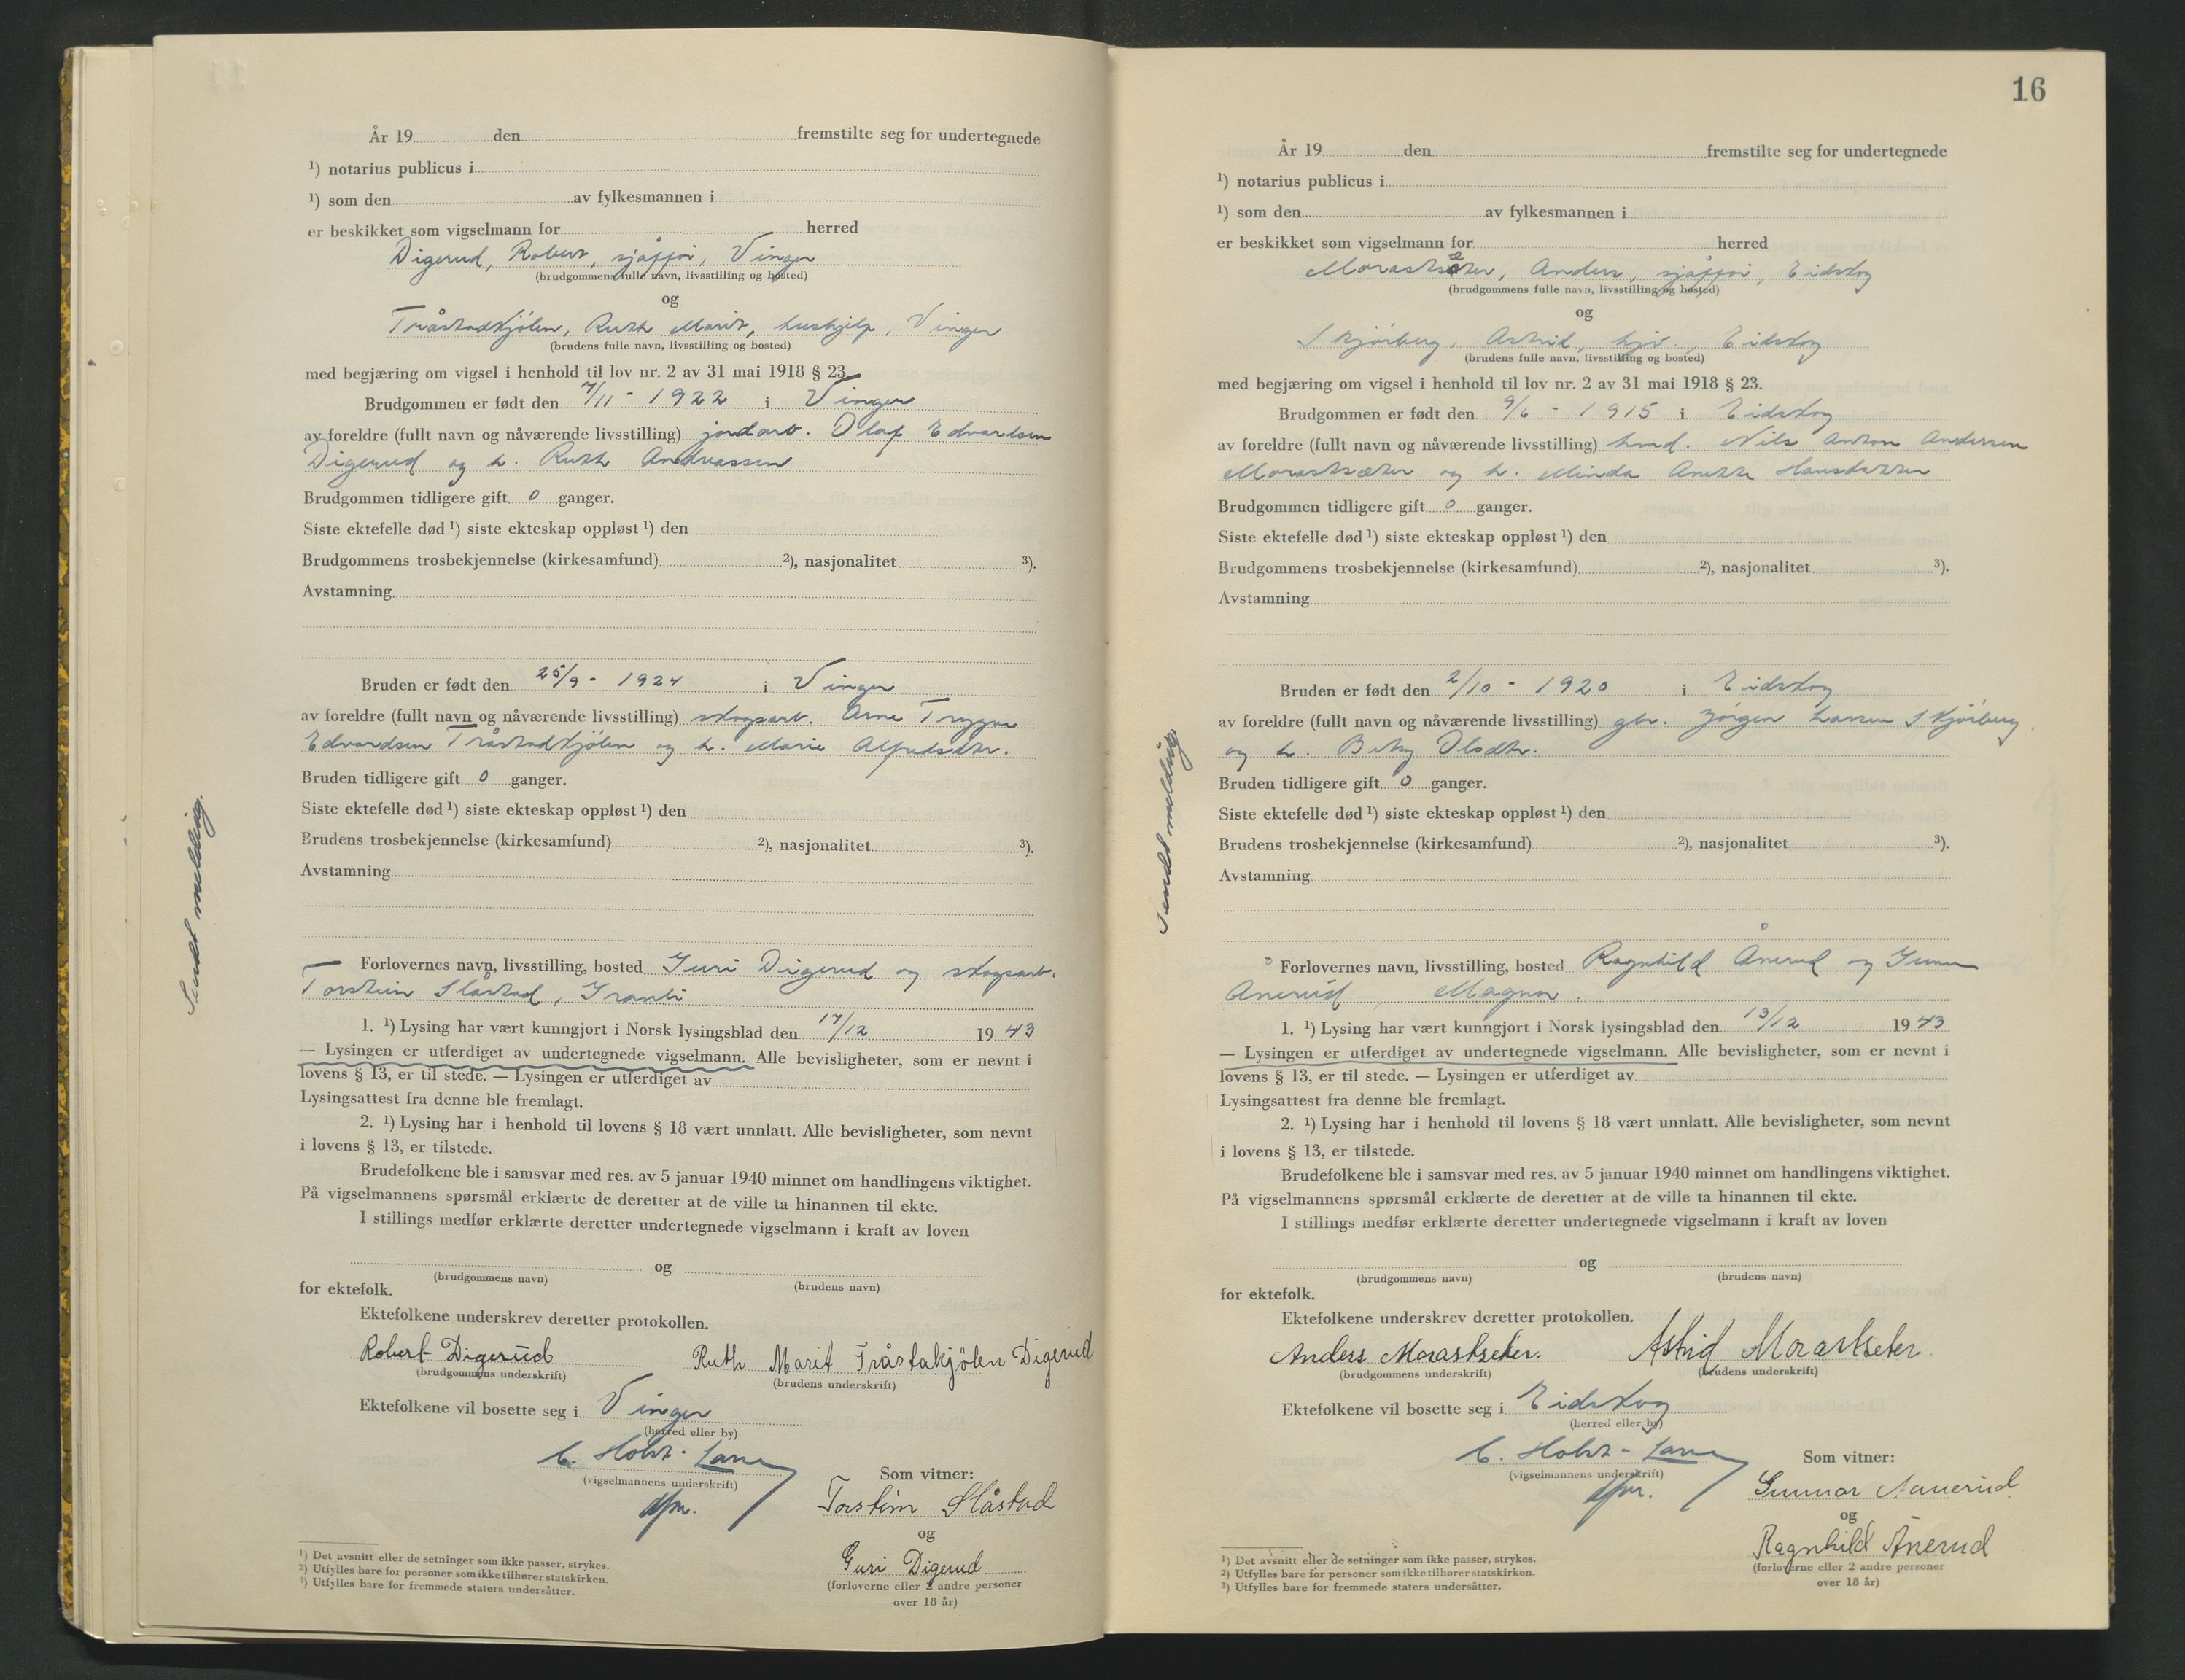 År 19 den fremstilte seg for undertegnede
¹) notarius publicus i
¹) som den av fylkesmannen i
er beskikket som vigselmann for herred
Digerud, Robert, sjåfför, Vinger
(brudgommens fulle navn, livsstilling og bosted)
og
Tråstadkjölen, Ruth Marit, hushjelp, Vinger
(brudens fulle navn, livsstilling og bosted)
med begjæring om vigsel i henhold til lov nr. 2 av 31 mai 1918 § 23.
Brudgommen er født den 7/11 - 1922 i Vinger
av foreldre (fullt navn og nåværende livsstilling) jordarb. Olaf Edvardsen
Digerud og h. Ruth Andreassen
Brudgommen tidligere gift 0 ganger.
Siste ektefelle død ¹) siste ekteskap oppløst ¹) den
Brudgommens trosbekjennelse (kirkesamfund) ²), nasjonalitet ³).
Avstamning
Bruden er født den 25/9 - 1924 i Vinger
av foreldre (fullt navn og nåværende livsstilling) skogsarb. Arne Trygve
Edvardsen Tråstadkjölen og h. Marie Alfredsdtr.
Bruden tidligere gift 0 ganger.
Siste ektefelle død ¹) siste ekteskap oppløst ¹) den
Brudens trosbekjennelse (kirkesamfund) ²), nasjonalitet ³).
Avstamning
Forlovernes navn, livsstilling, bosted Guri Digerud og skogsarb.
Torstein Slåstad, Granli
1. ¹) Lysing har vært kunngjort i Norsk lysingsblad den 17/12 1943
— Lysingen er utferdiget av undertegnede vigselmann. Alle bevisligheter, som er nevnt i
lovens § 13, er til stede. — Lysingen er utferdiget av
Lysingsattest fra denne ble fremlagt.
2. ¹) Lysing har i henhold til lovens § 18 vært unnlatt. Alle bevisligheter, som nevnt
i lovens § 13, er tilstede.
Brudefolkene ble i samsvar med res. av 5 januar 1940 minnet om handlingens viktighet.
På vigselmannens spørsmål erklærte de deretter at de ville ta hinannen til ekte.
I stillings medfør erklærte deretter undertegnede vigselmann i kraft av loven
og
(brudgommens navn) (brudens navn)
for ektefolk.
Ektefolkene underskrev deretter protokollen.
Robert Digerud Ruth Marit Tråstakjölen Digerud
(brudgommens underskrift) (brudens underskrift)
Ektefolkene vil bosette seg i Vinger
(herred eller by)
C. Holst-Lane
(vigselmannens underskrift)
dfm.
Som vitner:
Torstein Slåstad
og
Guri Digerud
(forloverne eller 2 andre personer
over 18 år)
¹) Det avsnitt eller de setninger som ikke passer, strykes.
²) Utfylles bare for personer som ikke tilhører statskirken.
³) Utfylles bare for fremmede staters undersåtter.
Sendt melding.
16
År 19 den fremstilte seg for undertegnede
¹) notarius publicus i
¹) som den av fylkesmannen i
er beskikket som vigselmann for herred
Morastsæter, Anders, sjåfför, Eidskog
(brudgommens fulle navn, livsstilling og bosted)
og
Skjörberg, Astrid, hjv., Eidskog
(brudens fulle navn, livsstilling og bosted)
med begjæring om vigsel i henhold til lov nr. 2 av 31 mai 1918 § 23.
Brudgommen er født den 9/6 - 1915 i Eidskog
av foreldre (fullt navn og nåværende livsstilling) hmd. Nils Anton Andersen
Morastsæter og h. Minda Anette Hansdatter
Brudgommen tidligere gift 0 ganger.
Siste ektefelle død ¹) siste ekteskap oppløst ¹) den
Brudgommens trosbekjennelse (kirkesamfund) ²), nasjonalitet ³).
Avstamning
Bruden er født den 2/10 - 1920 i Eidskog
av foreldre (fullt navn og nåværende livsstilling) gbr. Jörgen Larsen Skjörberg
og h. Betsy Olsdtr.
Bruden tidligere gift 0 ganger.
Siste ektefelle død ¹) siste ekteskap oppløst ¹) den
Brudens trosbekjennelse (kirkesamfund) ²), nasjonalitet ³).
Avstamning
Forlovernes navn, livsstilling, bosted Ragnhild Ånerud og Gunnar
Anerud, Magnor.
1. ¹) Lysing har vært kunngjort i Norsk lysingsblad den 13/12 1943
— Lysingen er utferdiget av undertegnede vigselmann. Alle bevisligheter, som er nevnt i
lovens § 13, er til stede. — Lysingen er utferdiget av
Lysingsattest fra denne ble fremlagt.
2. ¹) Lysing har i henhold til lovens § 18 vært unnlatt. Alle bevisligheter, som nevnt
i lovens § 13, er tilstede.
Brudefolkene ble i samsvar med res. av 5 januar 1940 minnet om handlingens viktighet.
På vigselmannens spørsmål erklærte de deretter at de ville ta hinannen til ekte.
I stillings medfør erklærte deretter undertegnede vigselmann i kraft av loven
og
(brudgommens navn) (brudens navn)
for ektefolk.
Ektefolkene underskrev deretter protokollen.
Anders Morastseter. Astrid Morastseter.
(brudgommens underskrift) (brudens underskrift)
Ektefolkene vil bosette seg i Eidskog
(herred eller by)
C. Holst-Lane
(vigselmannens underskrift)
dfm.
Som vitner:
Gunnar Aanerud
og
Ragnhild Ånerud
(forloverne eller 2 andre personer
over 18 år)
¹) Det avsnitt eller de setninger som ikke passer, strykes.
²) Utfylles bare for personer som ikke tilhører statskirken.
³) Utfylles bare for fremmede staters undersåtter.
Sendt melding.